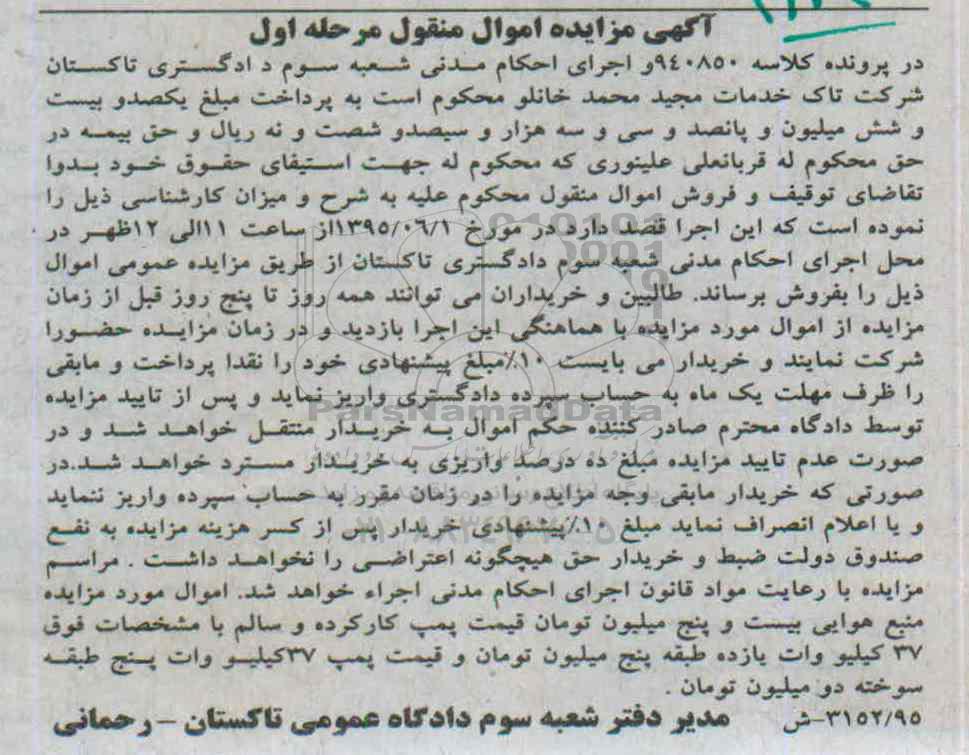 آگهی مزایده اموال منقول مرحله اول
در پرونده کلاسه ۹٤۰۸۵۰و اجرای احکام مدنی شعبه سوم د ادگستری تاکستان
شرکت تاک خدمات مجید محمد خانلو محکوم است به پرداخت مبلغ یکصدو بیست
و شش میلیون و پانصد و سی و سه هزار و سیصدو شصت و نه ریال و حق بیمه در
حق محکوم له قربانعلی علینوری که محکوم له جهت استیفای حقوق خود بدوا
تقاضای توقیف و فروش اموال منقول محکوم علیه به شرح و میزان کارشناسی ذیل را
نموده است که این اجرا قصد دارد در مورخ ۱۳۹۵/۰۶/۱از ساعت ۱۱الی ۱۲ظهر در
محل اجرای احکام مدنی شعبه سوم دادگستری تاکستان از طریق مزایده عمومی اموال
ذیل را بفروش برساند. طالبین و خریداران می توانند همه روز تا پنج روز قبل از زمان
مزایده از اموال مورد مزایده با هماهنگی این اجرا بازدید و در زمان مزایده حضورا
شرکت نمایند و خریدار می بایست ۱۰٪مبلغ پیشنهادی خود را نقدا پرداخت و مابقی
را ظرف مهلت یک ماه به حساب سپرده دادگستری واریز نماید و پس از تایید مزایده
ParsNamadData
توسط دادگاه محترم صادر کننده حکم اموال به خریدار منتقل خواهد شد و در
صورت عدم تایید مزایده مبلغ ده درصد واریزی به خریدار مسترد خواهد شد.در
صورتی که خریدار مابقی وجه مزایده را در زمان مقرر به حساب سپرده واریز ننماید
و یا اعلام انصراف نماید مبلغ ۱۰٪پیشنهادی خریدار پس از کسر هزینه مزایده به نفع
صندوق دولت ضبط و خریدار حق هیچگونه اعتراضی را نخواهد داشت . مراسم
مزایده با رعایت مواد قانون اجرای احکام مدنی اجراء خواهد شد. اموال مورد مزایده
منبع هوایی بیست و پنج میلیون تومان قیمت پمپ کارکرده و سالم با مشخصات فوق
۳۷ کیلیو وات یازده طبقه پنج میلیون تومان و قیمت پمپ ۳۷کیلیو وات پنج طبقه
سوخته دو میلیون تومان .
۳۱۵۲/۹۵-ش مدیر دفتر شعبه سوم دادگاه عمومی تاکستان – رحمانی